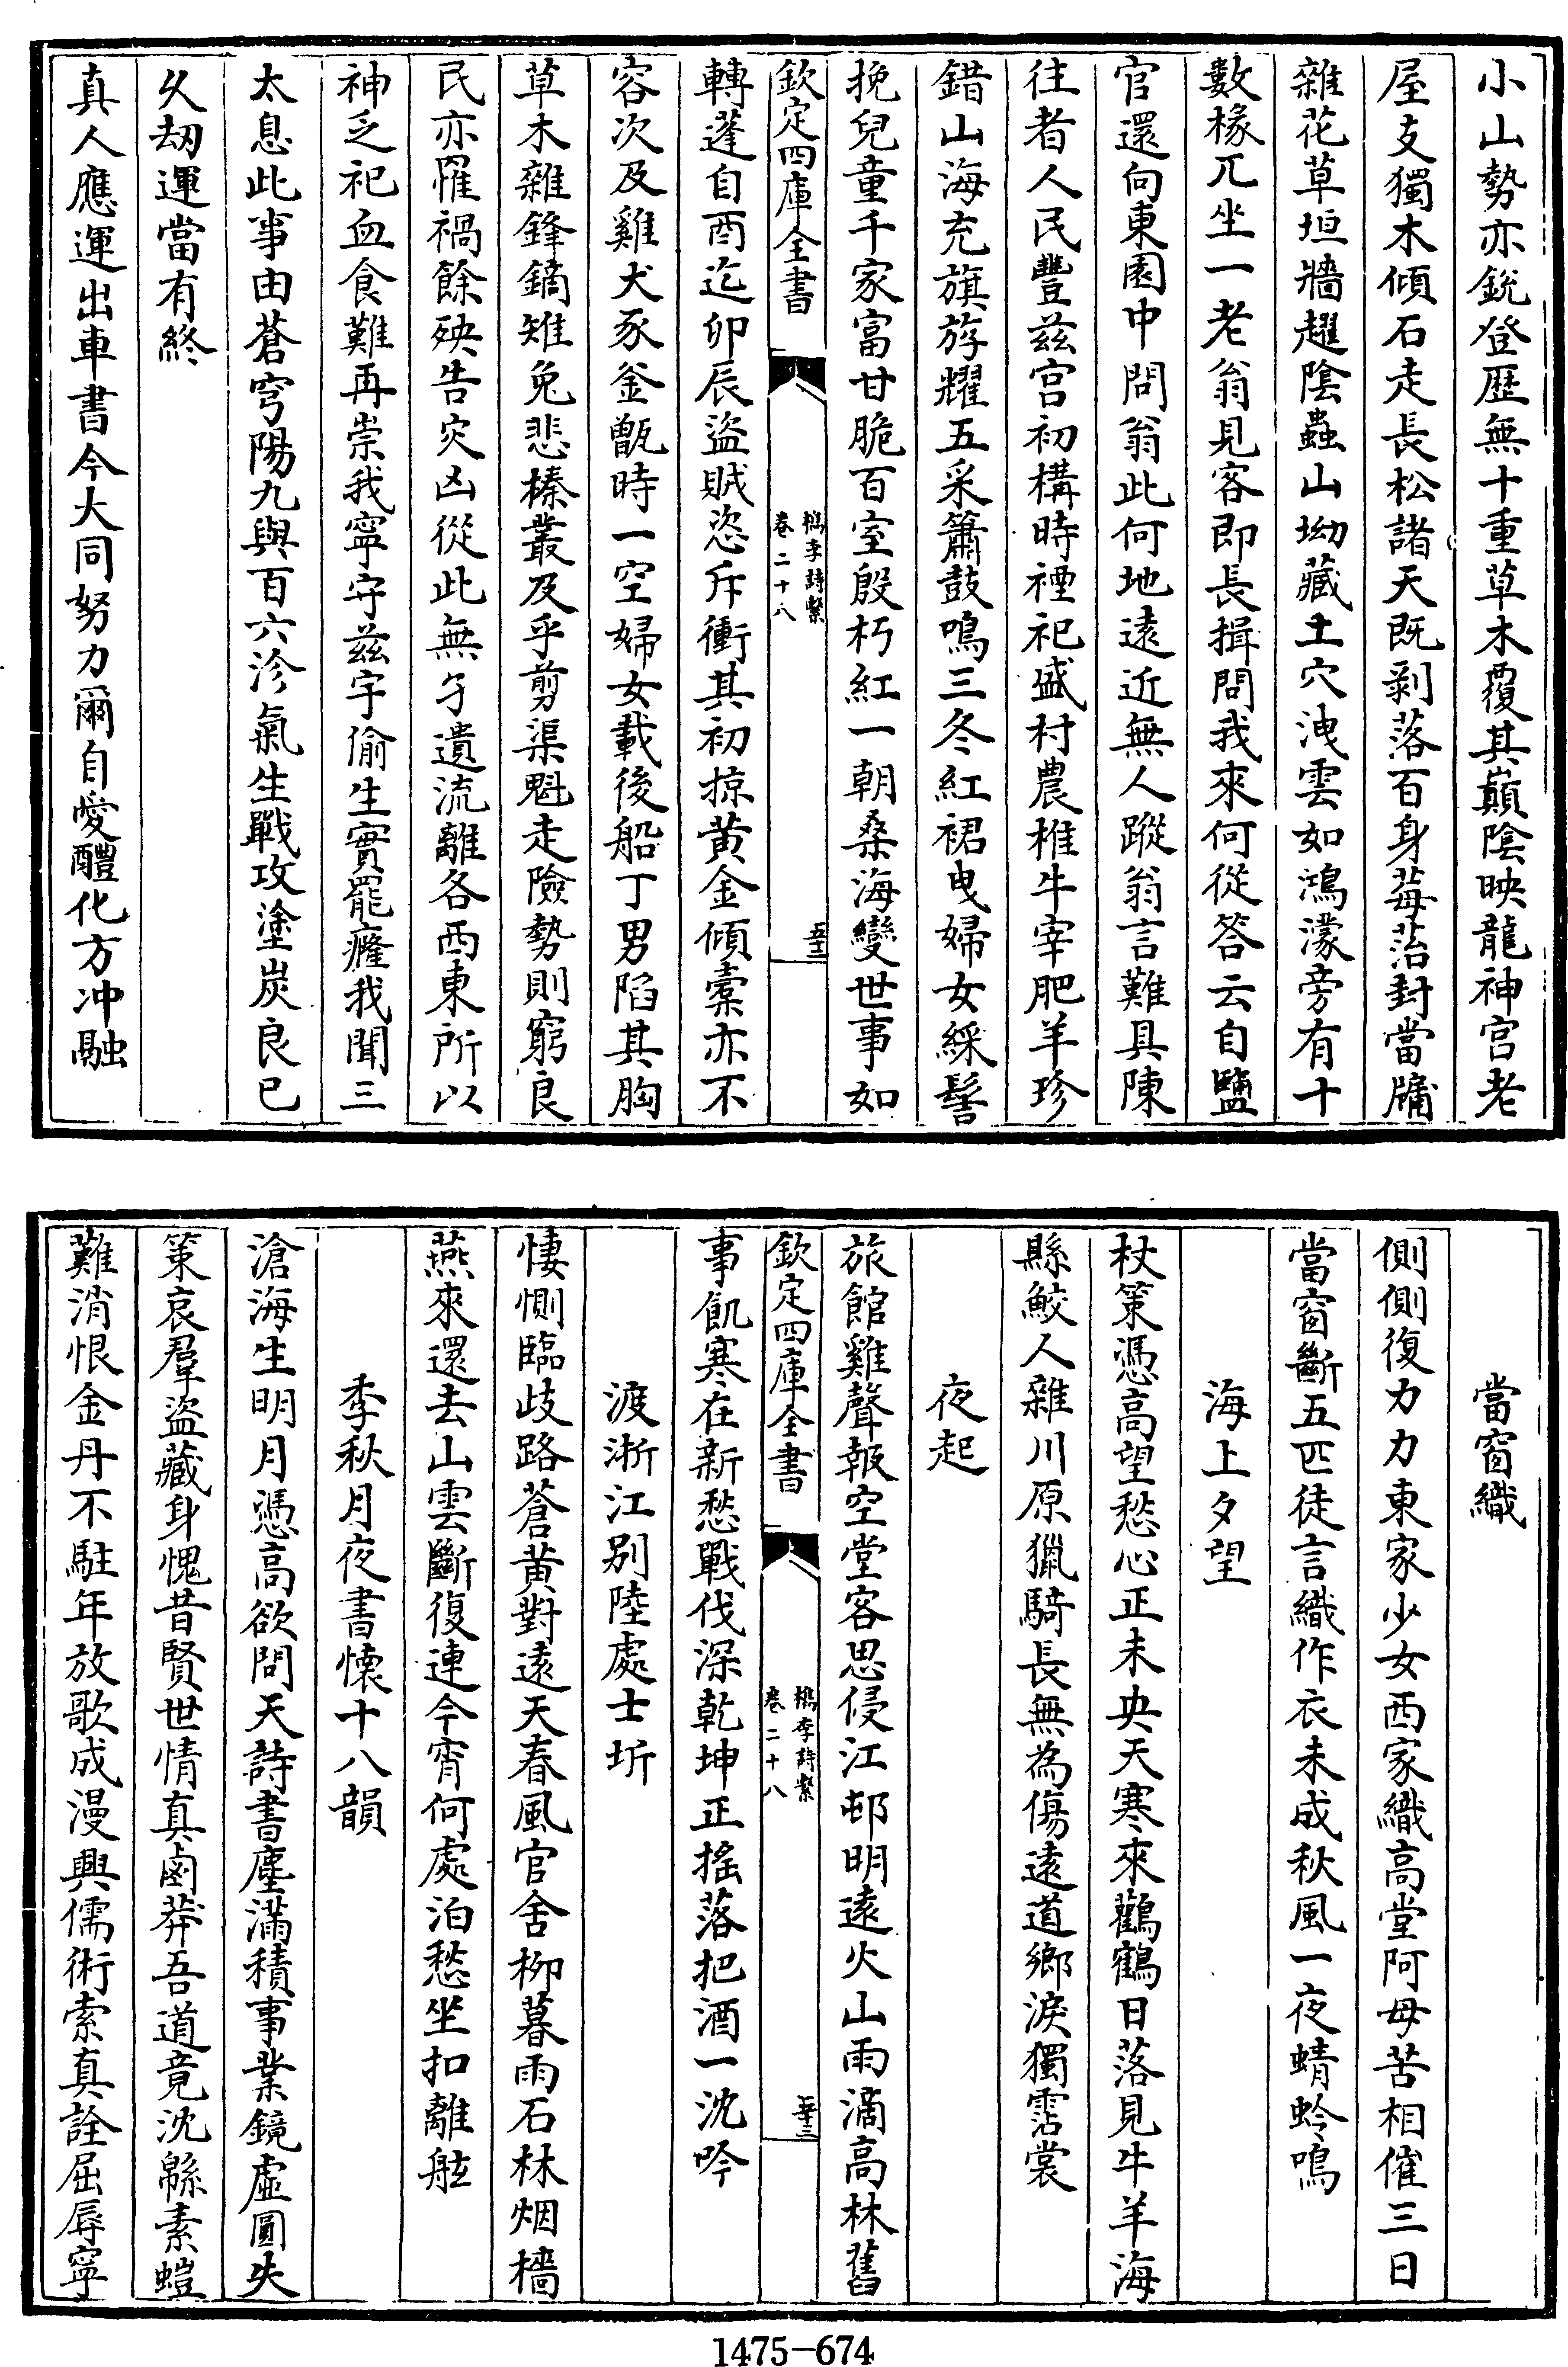 小山勢亦銳登歷無十重草木覆其巔陰映龍神宮老
屋支獨木傾石走長松諸天既剝落百身莓苔封當牖
雜花草垣牆趯陰蟲山坳藏土穴洩雲如鴻濛旁有十
數椽兀坐一老翁見客即長揖問我來何從答云自鹽
官還向東園中問翁此何地遠近無人蹤翁言難具陳
往者人民豐茲宮初構時禋祀盛村農椎牛宰肥羊珍
錯山海充旗斿耀五采簫鼓鳴三冬紅裙曳婦女綵髻
挽兒童千家富甘脆百室殷朽紅一朝桑海變世事如
欽定四庫全書
檇李詩繫
卷二十八
五十二
轉蓬自酉迄卯辰盜賊恣斥衝其初掠黃金傾橐亦不
容次及雞犬豕釜甑時一空婦女載後船丁男陷其胸
草木雜鋒鏑雉兔悲榛叢及乎剪渠魁走險勢則窮良
民亦罹禍餘殃告灾凶從此無孑遺流離各西東所以
神乏祀血食難再崇我寧守茲宇偷生實罷癃我聞三
太息此事由蒼穹陽九與百六沴氣生戰攻塗炭良已
乆刼運當有終
真人應運出車書今大同努力爾自愛醴化方冲融
當窗織
側側復力力東家少女西家織高堂阿母苦相催三日
當窗斷五匹徒言織作衣未成秋風一夜蜻蛉鳴
海上夕望
杖策憑高望愁心正未央天寒來鸛鶴日落見牛羊海
縣鮫人雜川原獵騎長無為傷遠道鄉淚獨霑裳
夜起
旅館雞聲報空堂客思侵江邨明遠火山雨滴高林舊
欽定四庫全書
檇李詩繫
卷二十八
五十三
事飢寒在新愁戰伐深乾坤正搖落把酒一沈吟
渡浙江別陸處士圻
悽惻臨歧路蒼黃對遠天春風官舍柳暮雨石林烟檣
燕來還去山雲斷復連今宵何處泊愁坐扣離舷
季秋月夜書懷十八韻
滄海生明月憑高欲問天詩書塵滿積事業鏡虛圓失
策哀羣盜藏身愧昔賢世情真鹵莽吾道竟沈緜素螘
難消恨金丹不駐年放歌成漫興儒術索真詮屈辱寧
1475-674